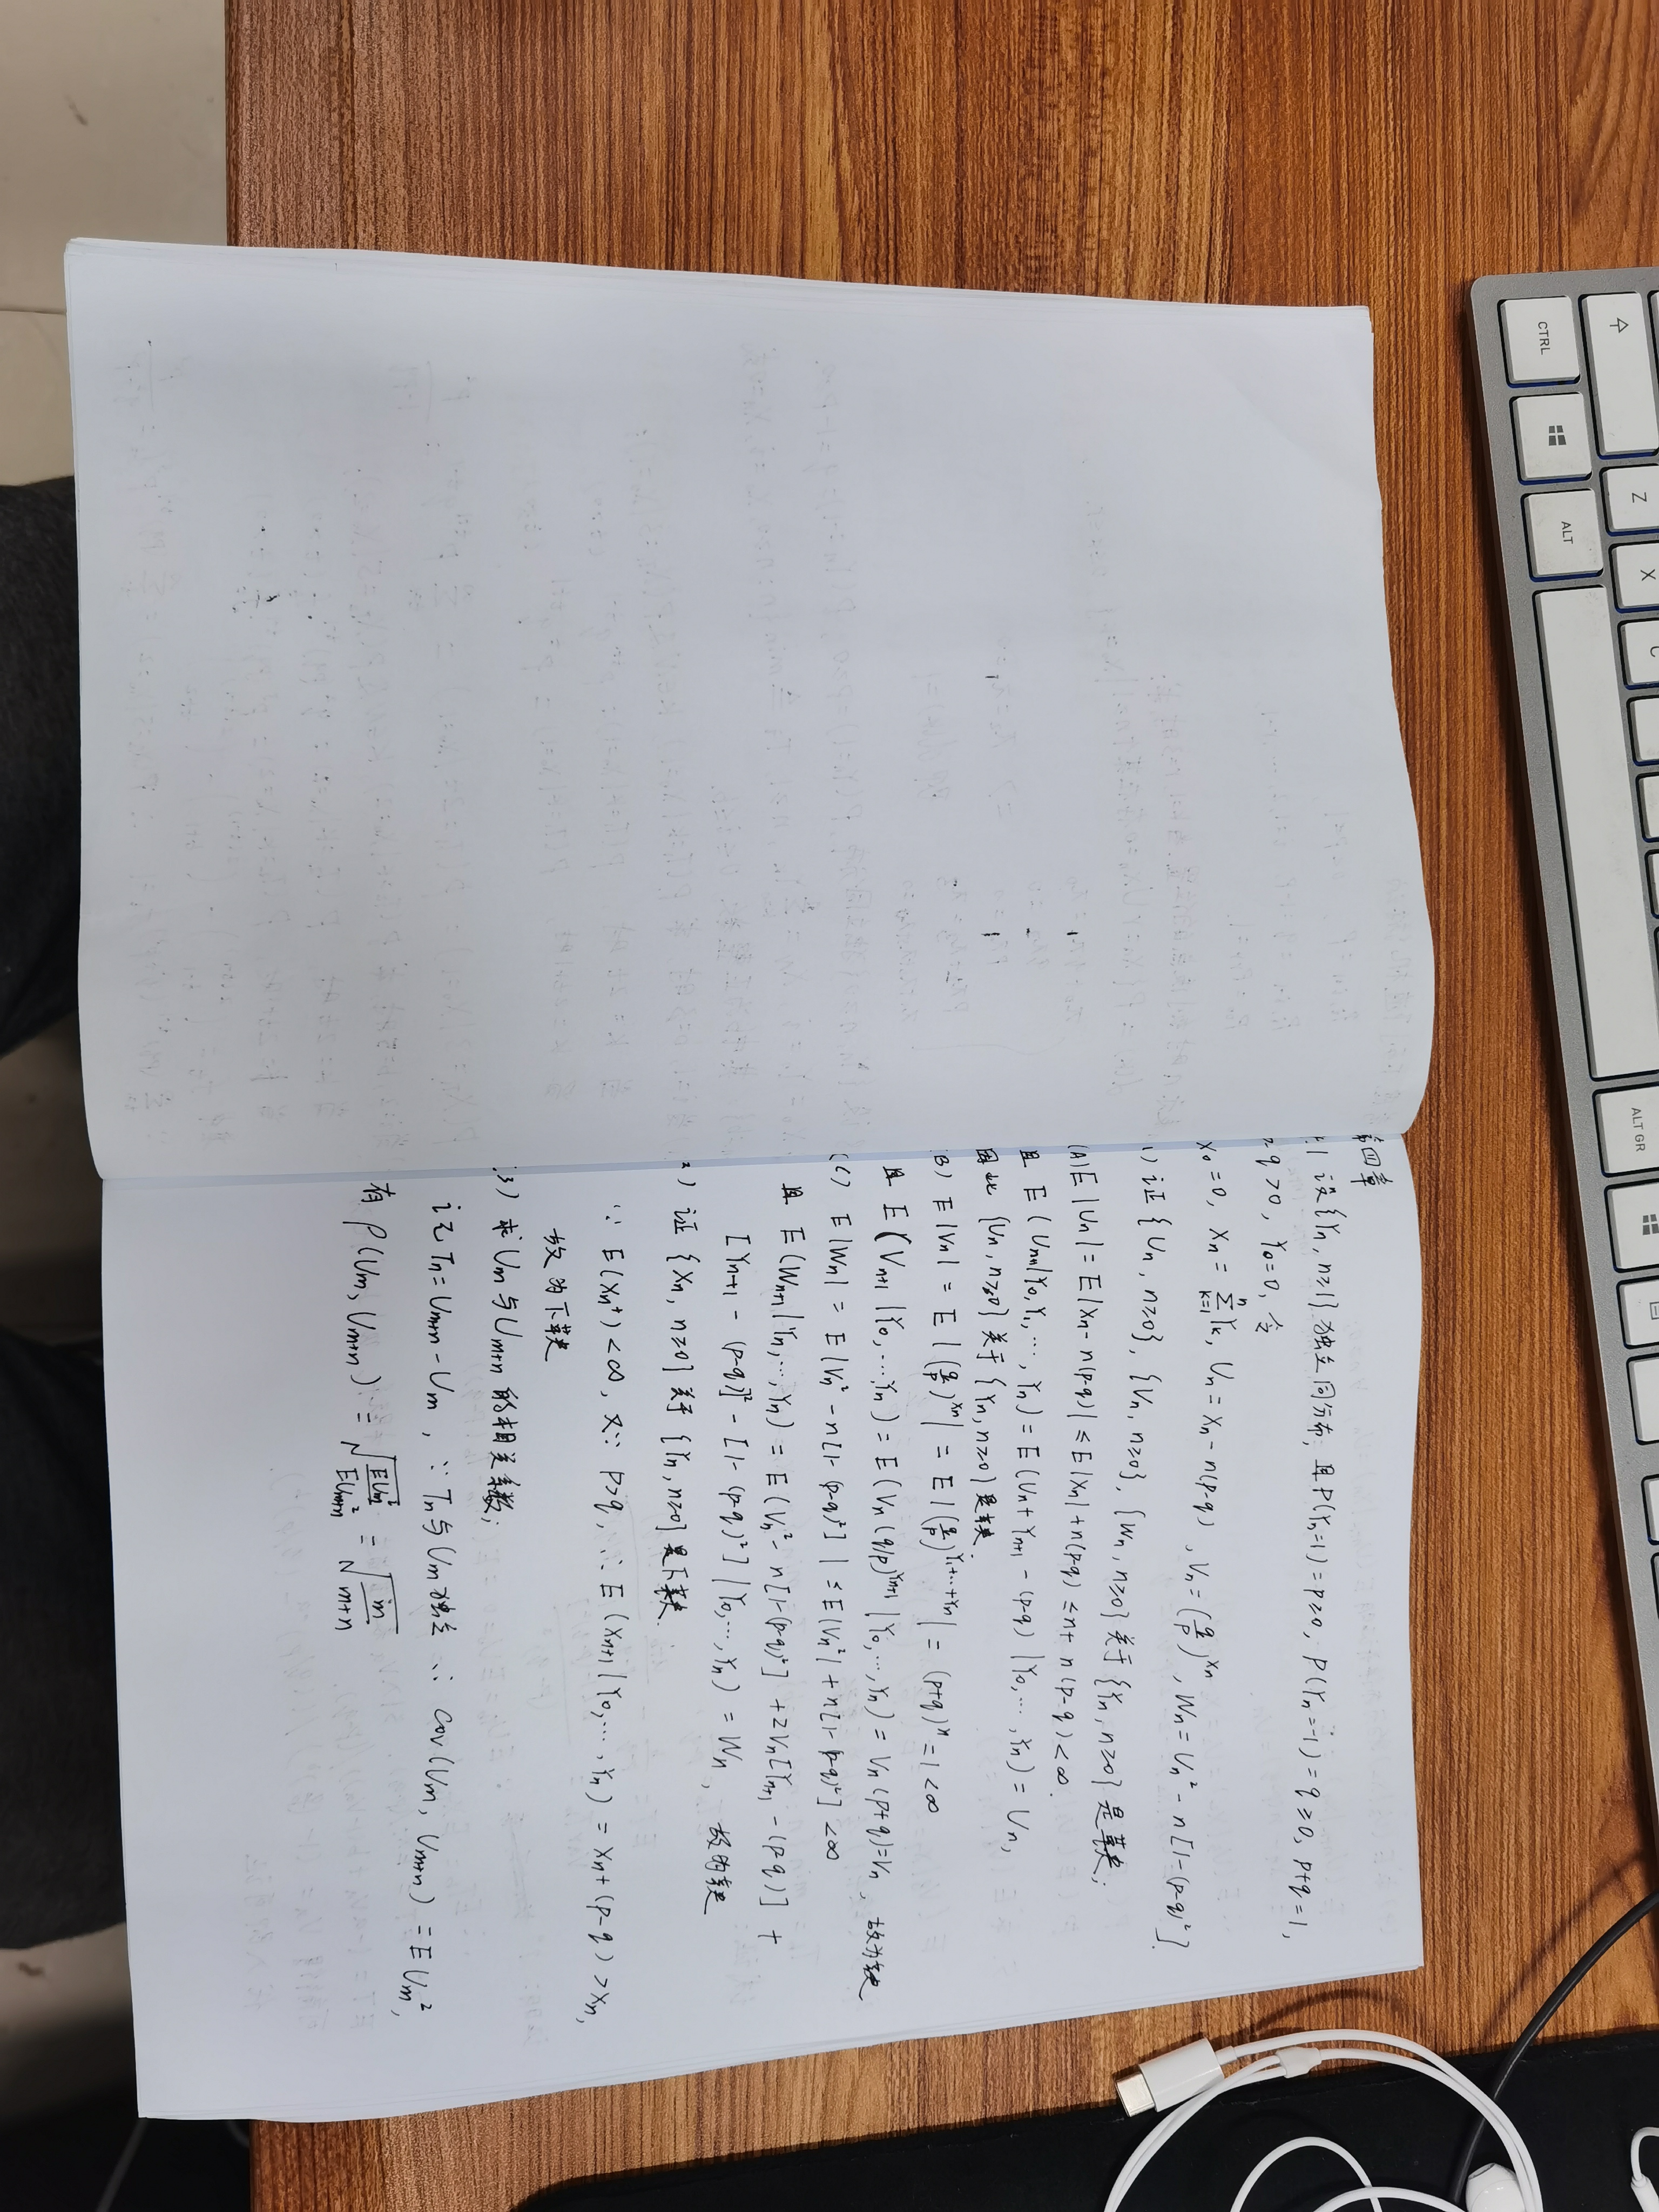 第四章
4.1 设{Yn, n≥1}独立同分布, 且P(Yn=1)=p≥0, P(Yn=-1)=q≥0, p+q=1,
q>0, Y0=0, 令
X0=0, Xn=∑_{k=1}^{n}Yk, Un=Xn-n(p-q), Vn=(q/p)^{Xn}, Wn=Un²-n[1-(p-q)²].
1) 证{Un, n≥0}, {Vn, n≥0}, {Wn, n≥0}关于{Yn, n≥0}是鞅;
(A) E|Un|=E|Xn-n(p-q)|≤E|Xn|+n(p-q)≤n+n(p-q)<∞.
且 E(Un+1|Y0,Y1,…,Yn)=E(Un+Yn+1-(p-q)|Y0,…,Yn)=Un,
因此{Un, n≥0}关于{Yn, n≥0}是鞅.
(B) E|Vn|=E|(q/p)^{Xn}|=E|(q/p)^{Y1+…+Yn}|=(p+q)^n=1<∞
且 E(Vn+1|Y0,…,Yn)=E(Vn(q/p)^{Yn+1}|Y0,…,Yn)=Vn(p+q)=Vn, 故为鞅.
(C) E|Wn|=E|Vn²-n[1-(p-q)²]|≤E|Vn²|+n[1-(p-q)²]<∞
且 E(Wn+1|Yn,…,Yn)=E(Vn²-n[1-(p-q)²]+2Vn[Yn+1-(p-q)]+
[Yn+1-(p-q)]²-[1-(p-q)²]|Y0,…,Yn)=Wn, 故为鞅
2) 证{Xn, n≥0}关于{Yn, n≥0}是下鞅.
∵E(Xn⁺)<∞, 又∵p>q, ∴E(Xn+1|Y0,…,Yn)=Xn+(p-q)>Xn,
故为下鞅
3) 求Um与Um+n的相关系数;
记Tn=Um+n-Um, ∵Tn与Um独立 ∴cov(Um, Um+n)=EUm²,
有 ρ(Um, Um+n)=√(EUm²/EUm+n²)=√(m/(m+n))
CTRL
ALT
Z
X
C
ALT GR